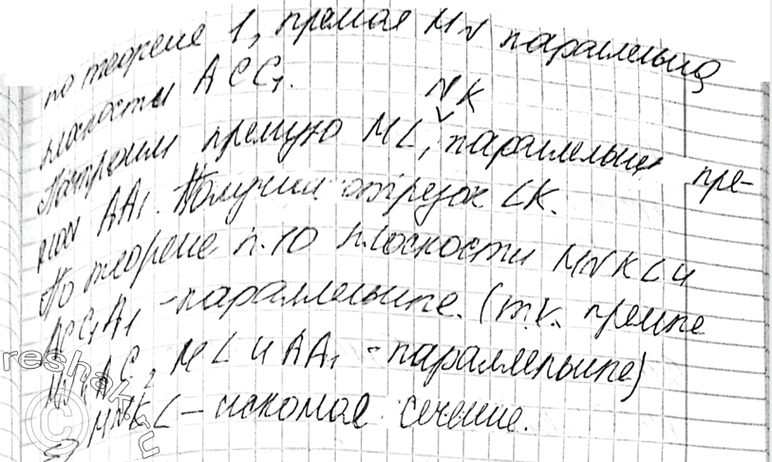 по теореме 1, прямая MN параллельна
плоскости ACC₁.
NK
Построим прямую ML, параллельные пря-
мой AA₁. Получим отрезок LK.
По теореме п.10 плоскости MNKL и
ACC₁A₁ - параллельные. (т.к. прямые
MN и AC, ML и AA₁ - параллельные)
MNKL - искомое сечение.
reshak.ru